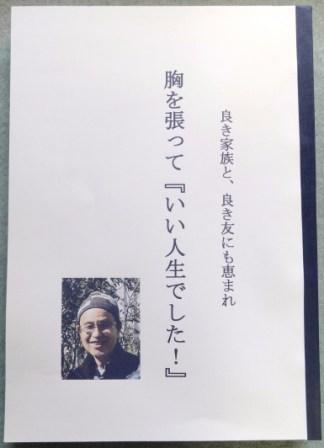 良き家族と、良き友にも恵まれ
胸を張って『いい人生でした！』